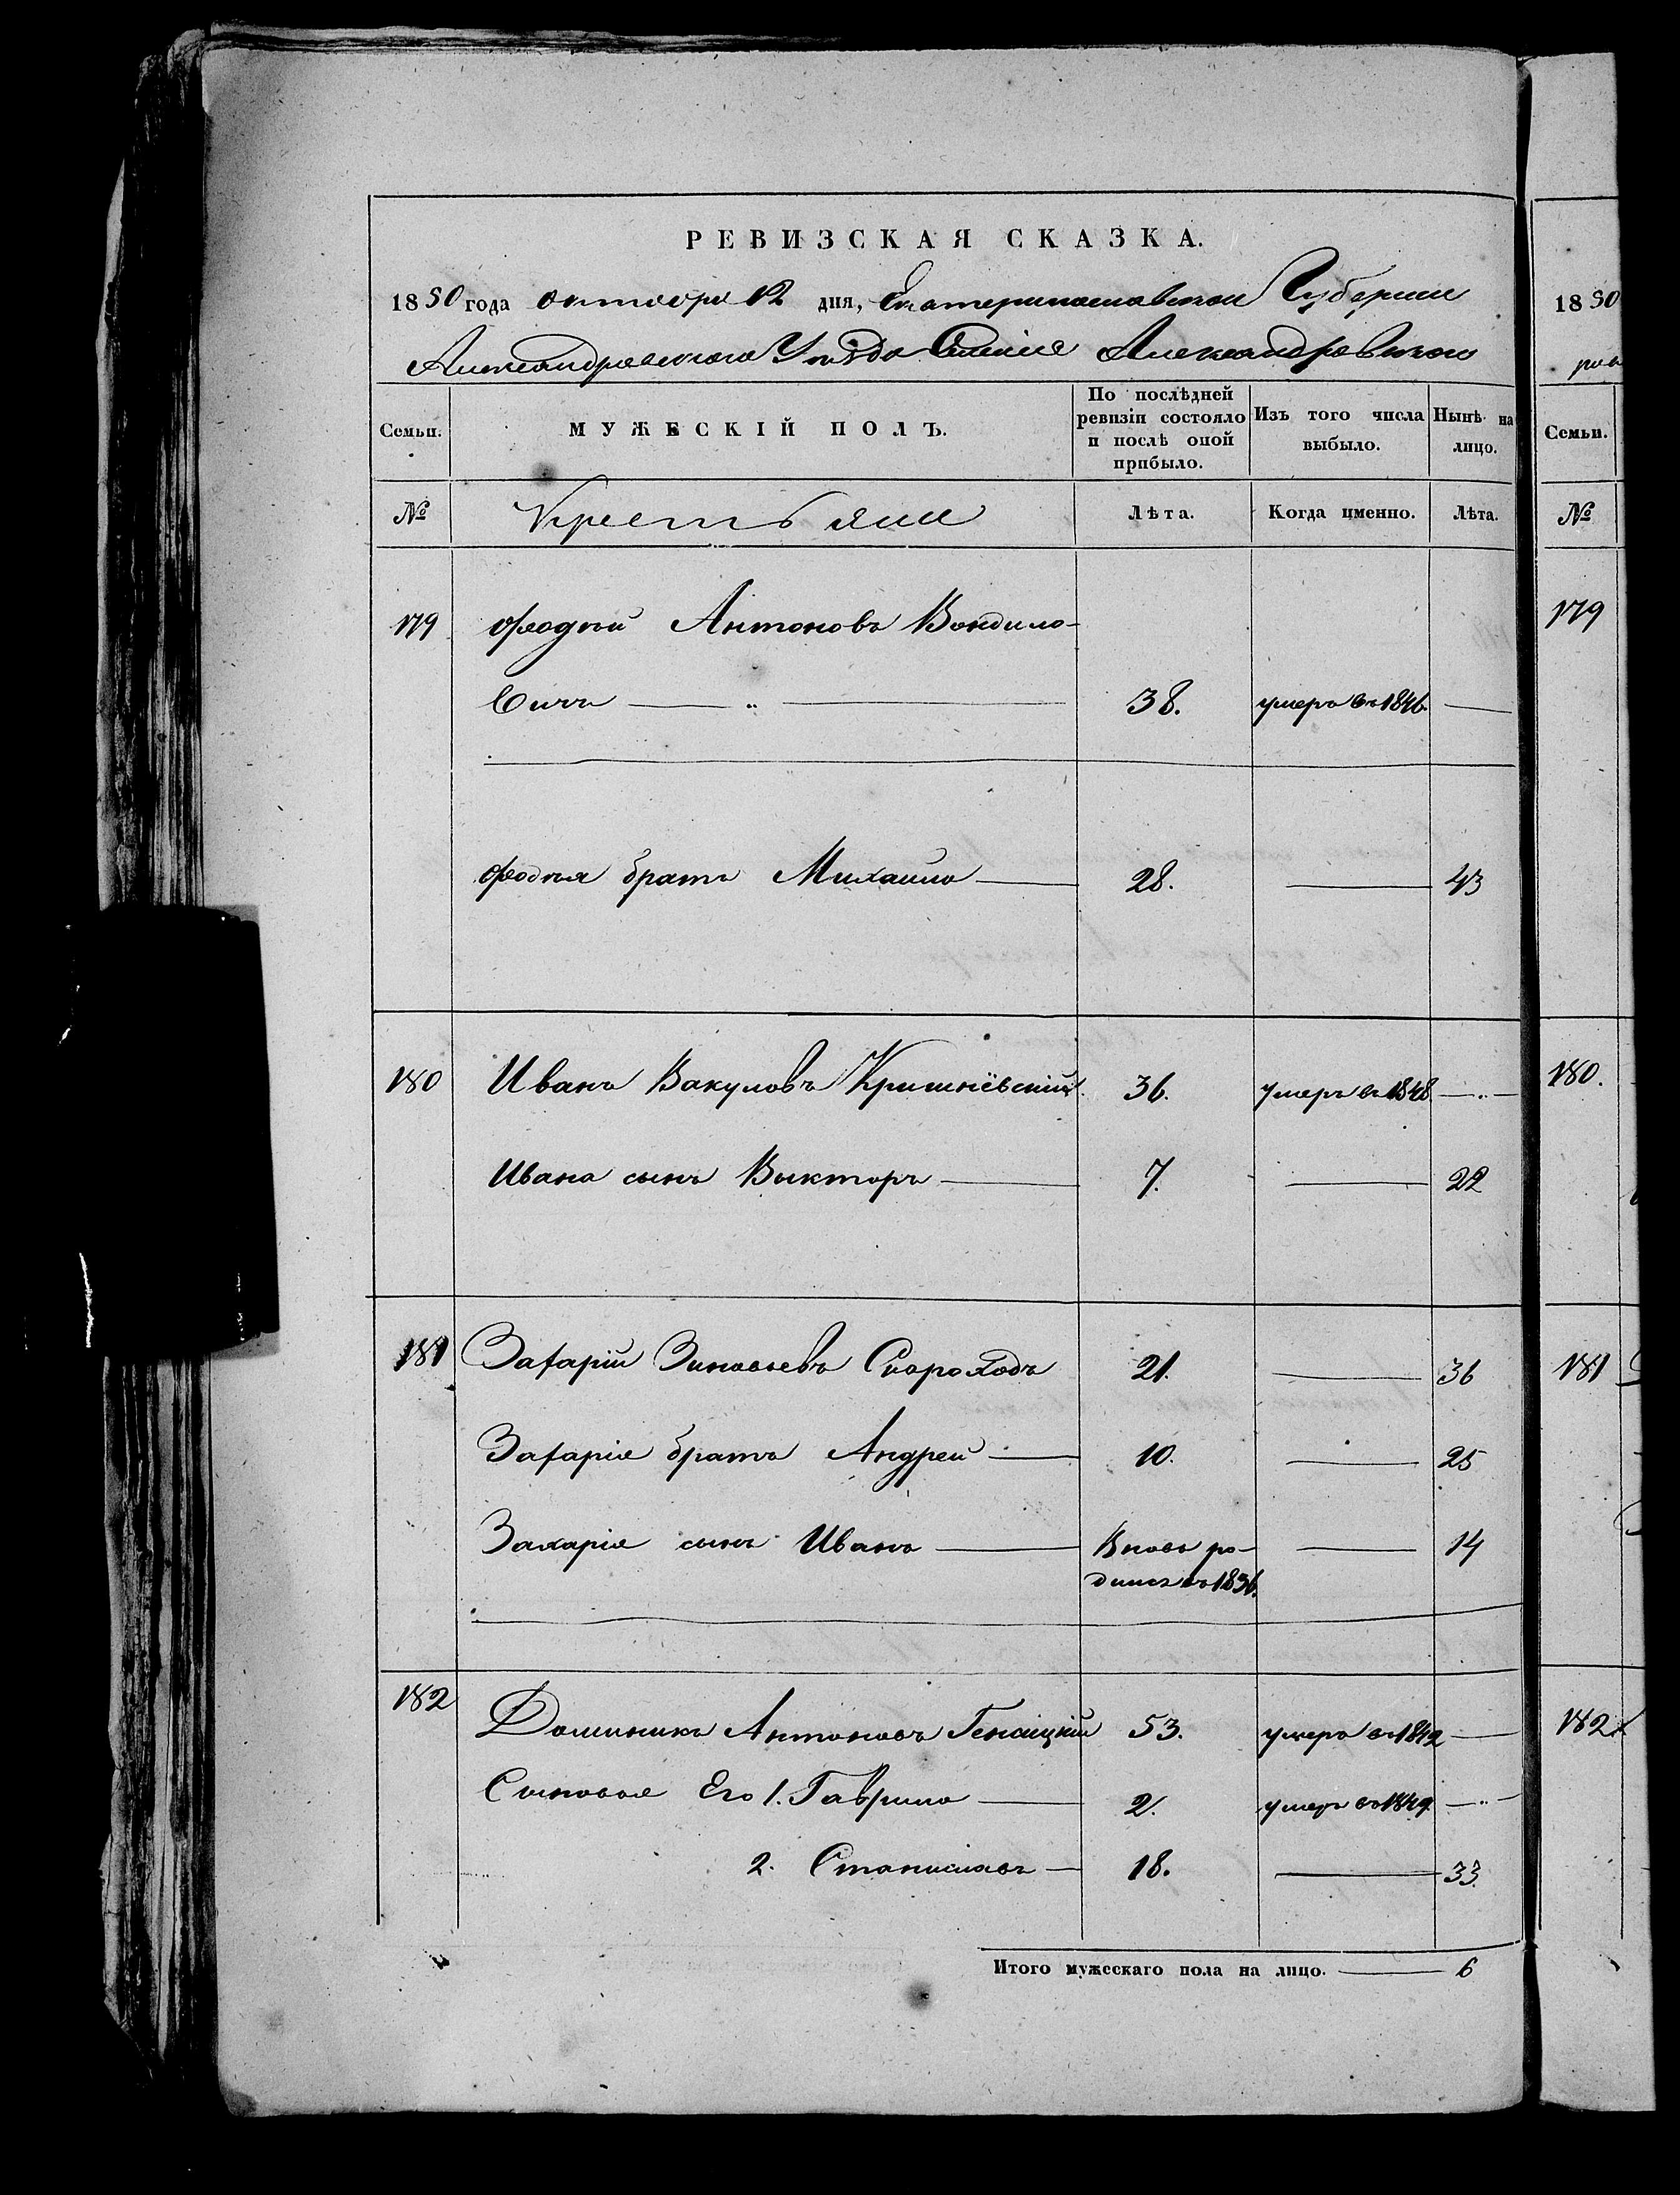 РЕВИЗСКАЯ СКАЗКА.
1850 года октября 12 дня, Екатеринославской Губернии
Александровского Уезда Александровского
Семьи. МУЖЕСКІЙ ПОЛЪ. По послѣдней ревизіи состояло и послѣ оной прибыло. Изъ того числа выбыло. Нынѣ на лицо.
№ Крестьяне Лѣта. Когда именно. Лѣта.
179 Фодѣй Антоновъ Вондило-
вичъ 38. умеръ въ 1846.
Фодѣя братъ Михайло 28. 43
180 Иванъ Вакуловъ Кришнёвскій 36. умеръ въ 1848
Ивана сынъ Викторъ 7. 22
181 Захарій Зиновьевъ Скороходъ 21. 36
Захарія братъ Андрей 10. 25
Захарія сынъ Иванъ Вновь ро- 14
дился въ 1836.
182 Доминикъ Антоновъ Генаицкій 53. умеръ въ 1842
Сыновья Его 1. Гаврило 2. умеръ въ 1849
2. Станиславъ 18. 33.
Итого мужескаго пола на лицо. 6
1850
Семьи.
№
179
180.
181
182